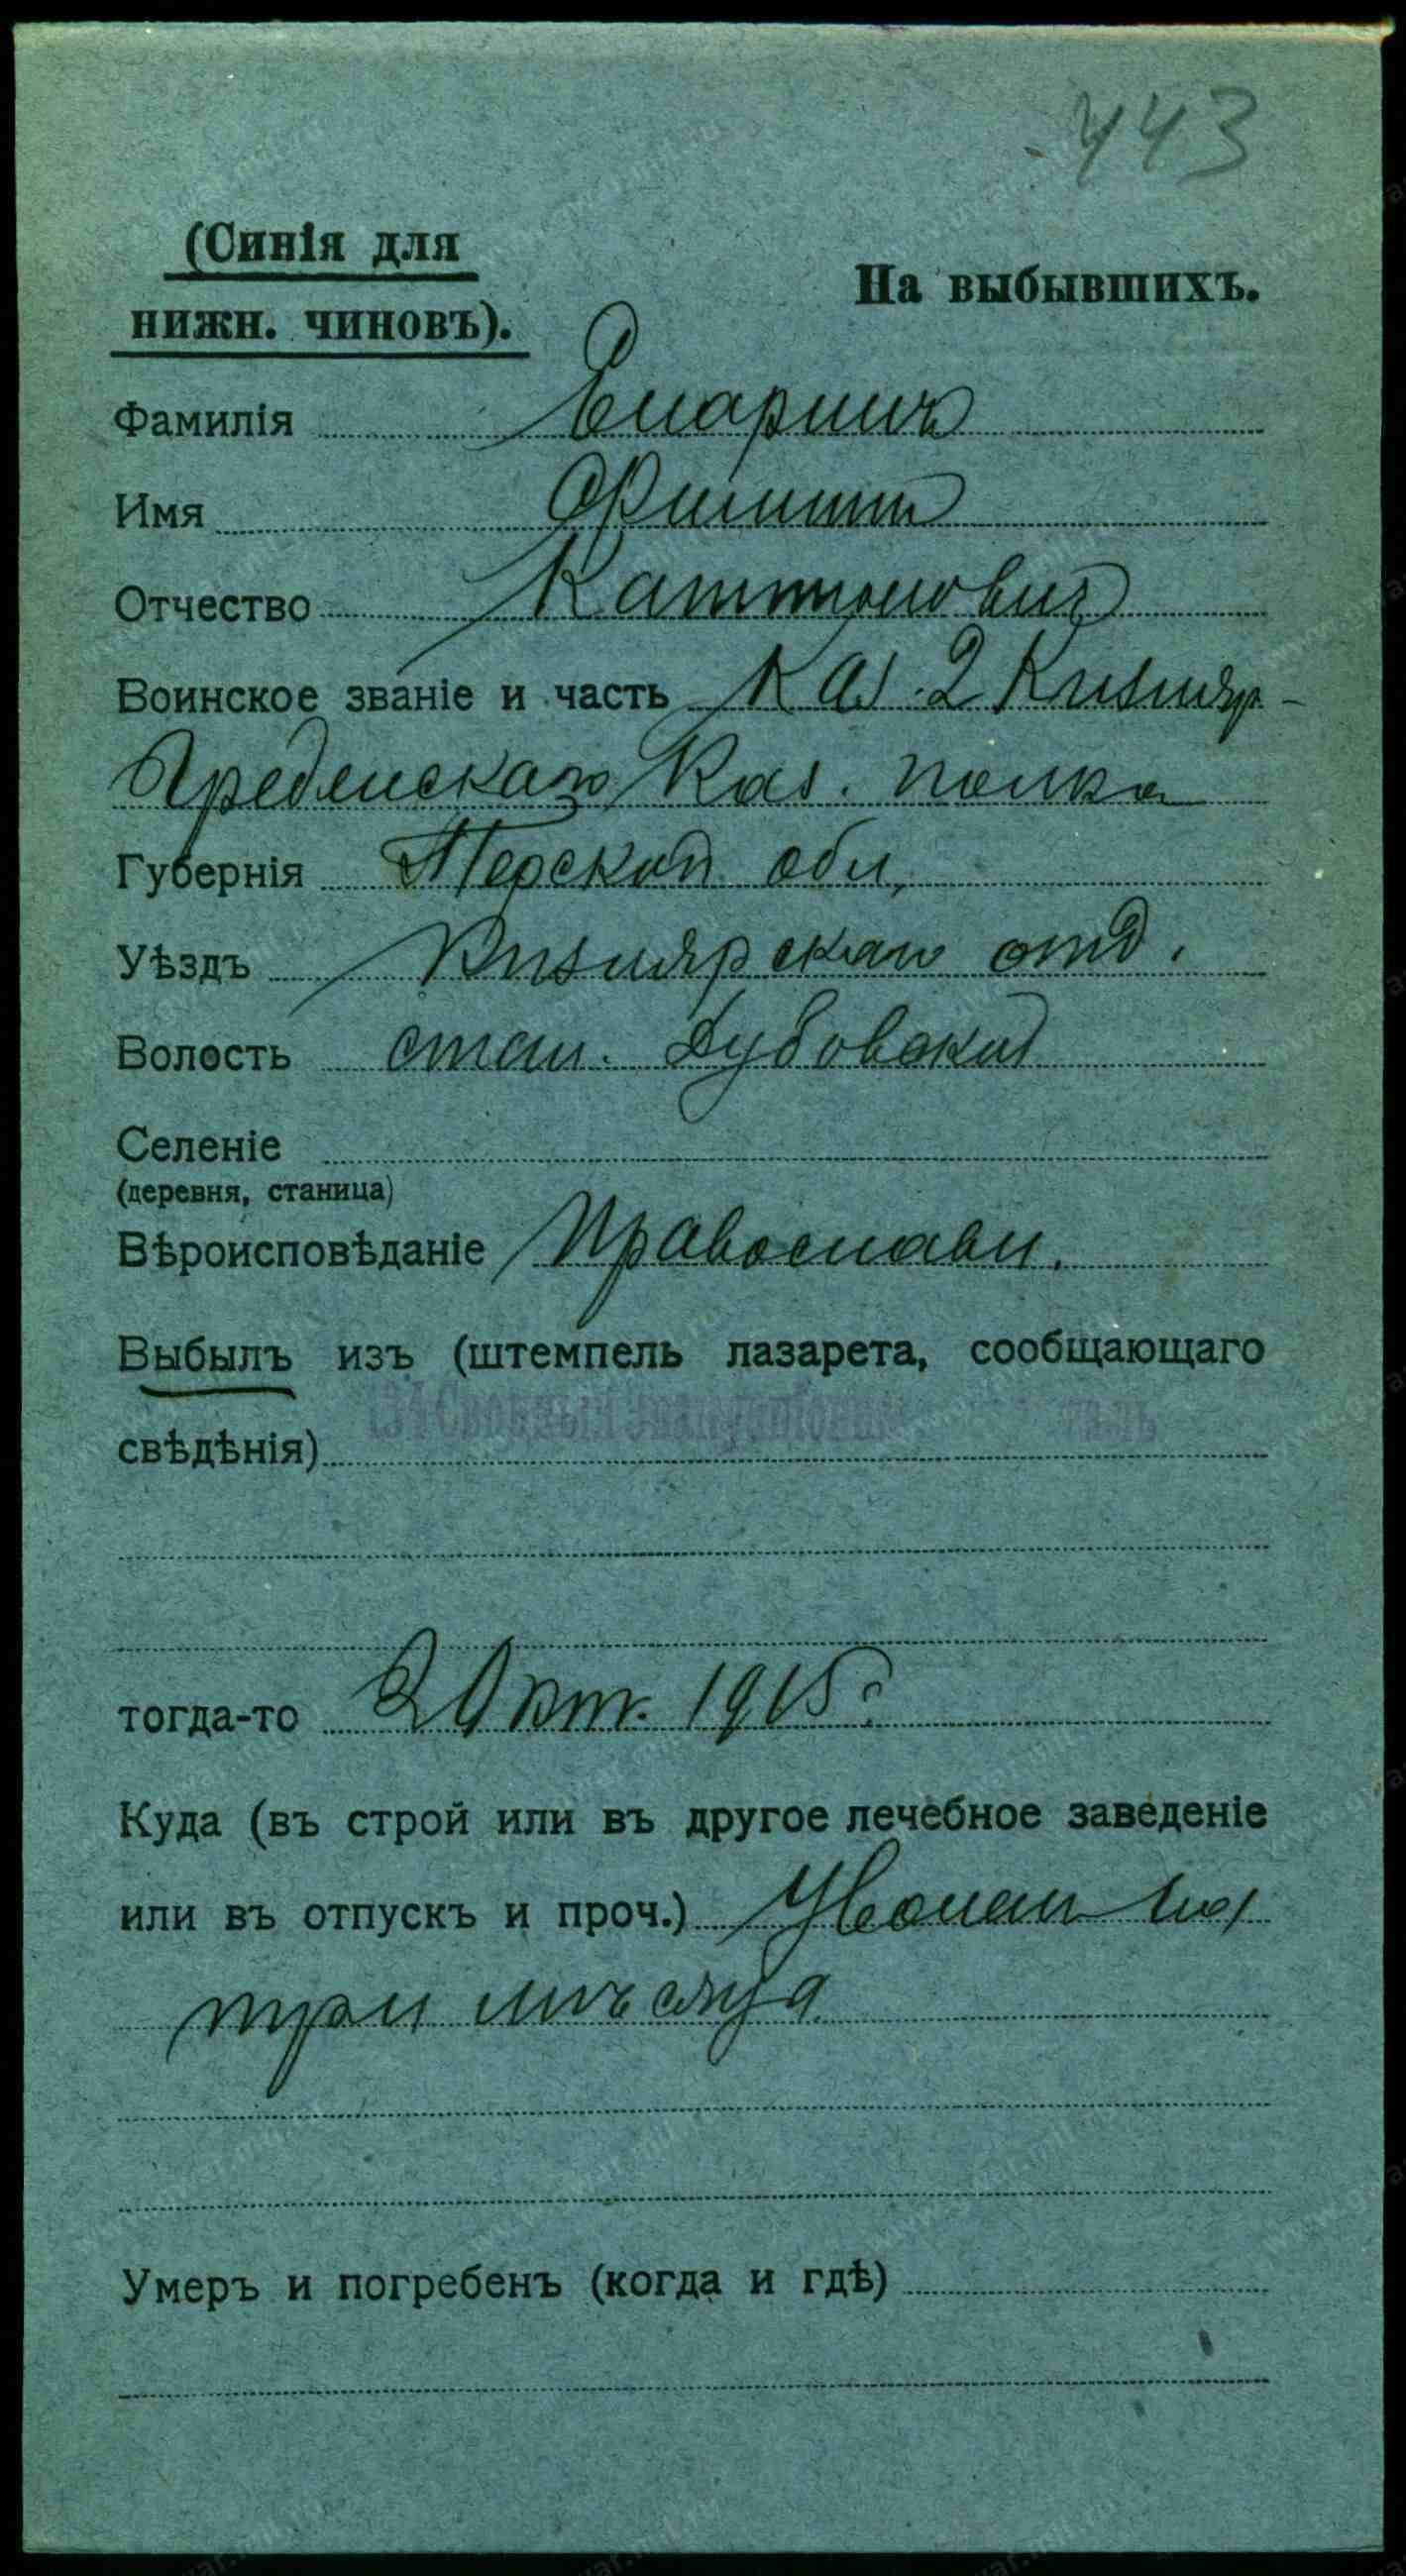 443
(Синія для
На выбывшихъ.
нижн. чиновъ).
Фамилія Епаринъ
Имя Филиппъ
Отчество
Воинское званіе и часть Каз. 2 Кизляр-
Гребенскаго Каз. полка
Губернія Терской обл.
Уѣздъ Кизлярскаго отд.
Волость стан. Дубовской
Селеніе
(деревня, станица)
Вѣроисповѣданіе Православн.
Выбылъ изъ (штемпель лазарета, сообщающаго
свѣдѣнія) Сводный эвакуаціонный
тогда-то 2 Окт. 1915 г.
Куда (въ строй или въ другое лечебное заведеніе
или въ отпускъ и проч.) Уволен на
три мѣсяца
Умеръ и погребенъ (когда и гдѣ)